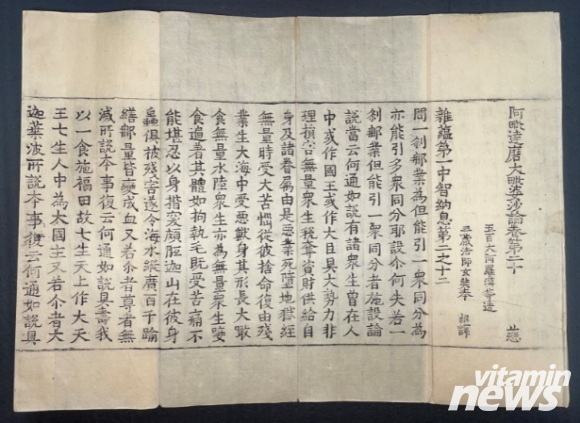 阿毗達磨大毗婆沙論卷第二十
五百大阿羅漢等造
三藏法師玄奘奉 詔譯
雜蘊第一中智納息第二之十二
問一剎那業為但能引一眾同分為
亦能引多眾同分耶設尒何失若一
剎那業但能引一眾同分者施設論
說當云何通如說有諸眾生曾在人
中或作國王或作大臣具大勢力非
理損害無量眾生稅奪資財供給自
身及諸眷屬由是惡業死墮地獄經
無量時受大苦惱從彼捨命復由殘
業生大海中受惡獸身其形長大噉
食無量水陸眾生亦為無量眾生唼
食遍著其體如拘執毛既受苦痛不
能堪忍以身揩突頗胝迦山在彼身
蟲俱被殘害遂令海水縱廣百千踰
繕那量皆變成血又若尒者尊者無
滅所說本事復云何通如說具壽我
以一食施福田故七生天上作大天
王七生人中為大國主又若尒者大
迦葉波所說本事復云何通如說具
vitamin
news